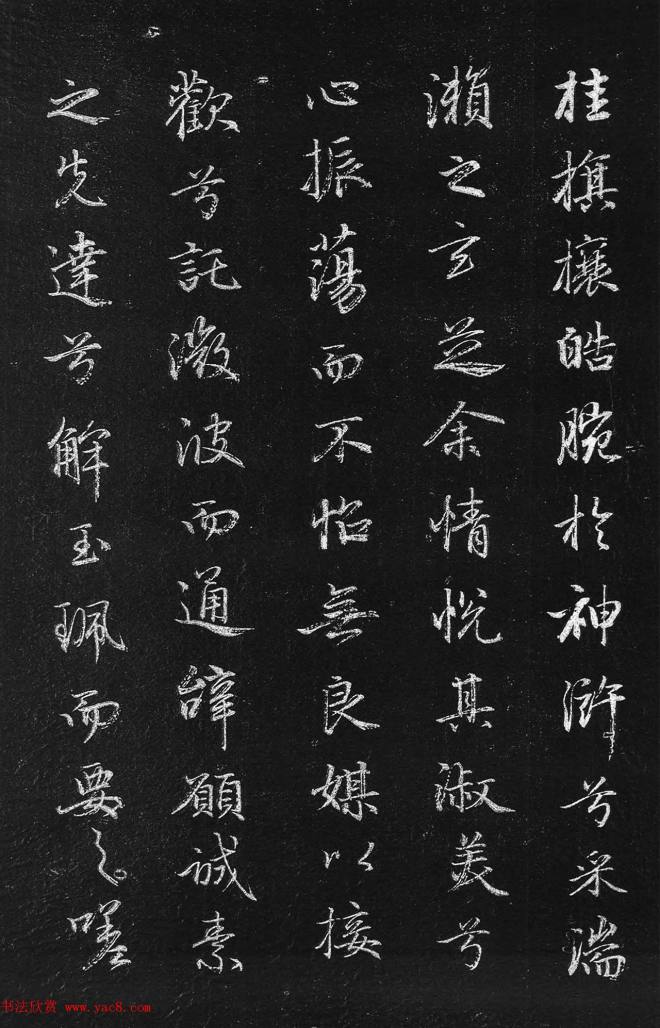 桂旗攘皓腕於神滸兮采湍
瀨之玄芝余情悅其淑美兮
心振蕩而不怡無良媒以接
歡兮託微波而通辭願誠素
之先達兮解玉珮而要之嗟
书法欣赏 www.yac8.com